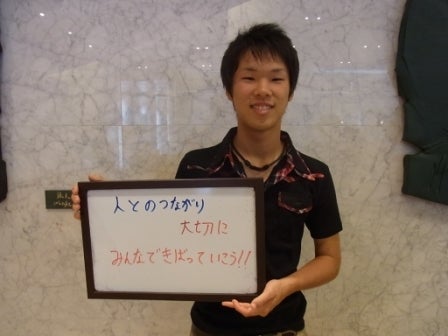 人とのつながり
大切に
みんなできばっていこう!!